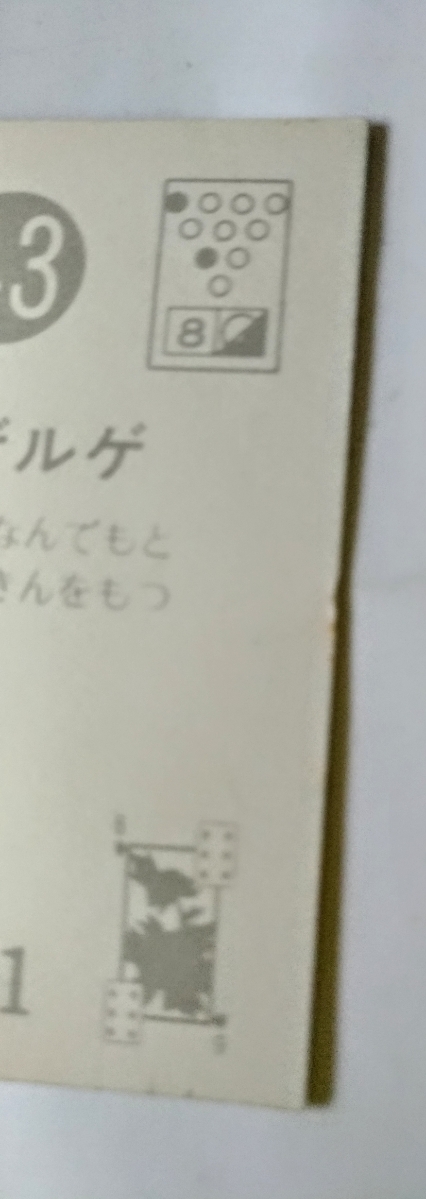 3
8
ルゲ
なんでもと
さんをもつ
1